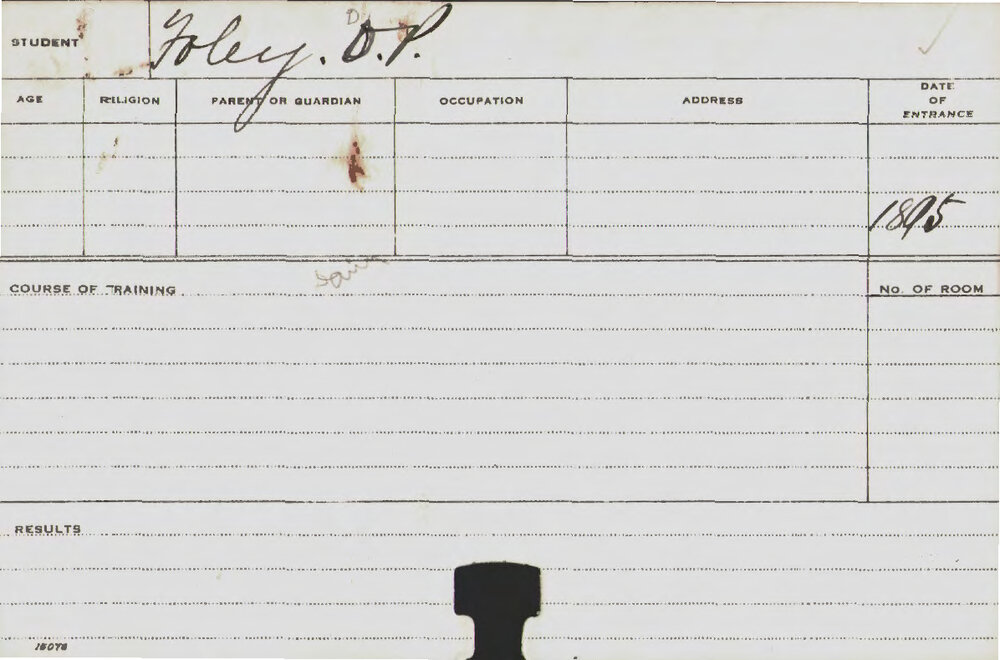 STUDENT Foley. D.P.
D.
AGE RELIGION PARENT OR GUARDIAN OCCUPATION ADDRESS DATE OF ENTRANCE
1895
COURSE OF TRAINING No. OF ROOM
RESULTS
15078